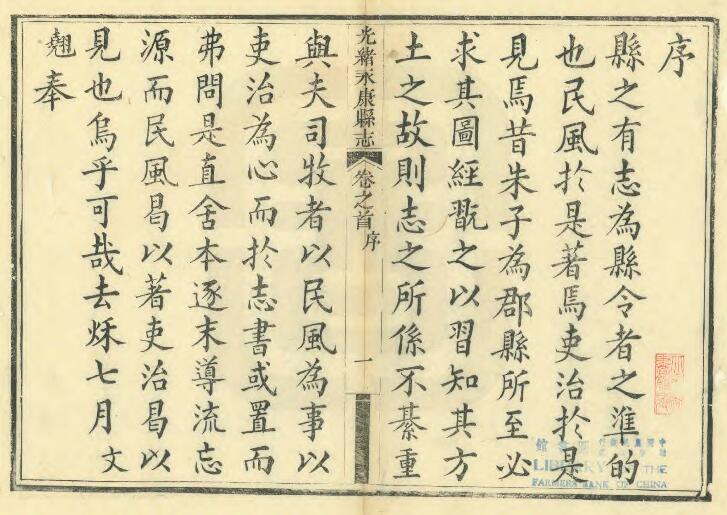 序
縣之有志為縣令者之準的
也民風於是著焉吏治於是
見焉昔朱子為郡縣所至必
求其圖經翫之以習知其方
土之故則志之所係不綦重
光緒永康縣志 卷之首 序 一
與夫司牧者以民風為事以
吏治為心而於志書或置而
弗問是直舍本逐末導流忘
源而民風曷以著吏治曷以
見也烏乎可哉去秌七月文
翹奉
LIBRARY THE
FARMERS BANK OF CHINA